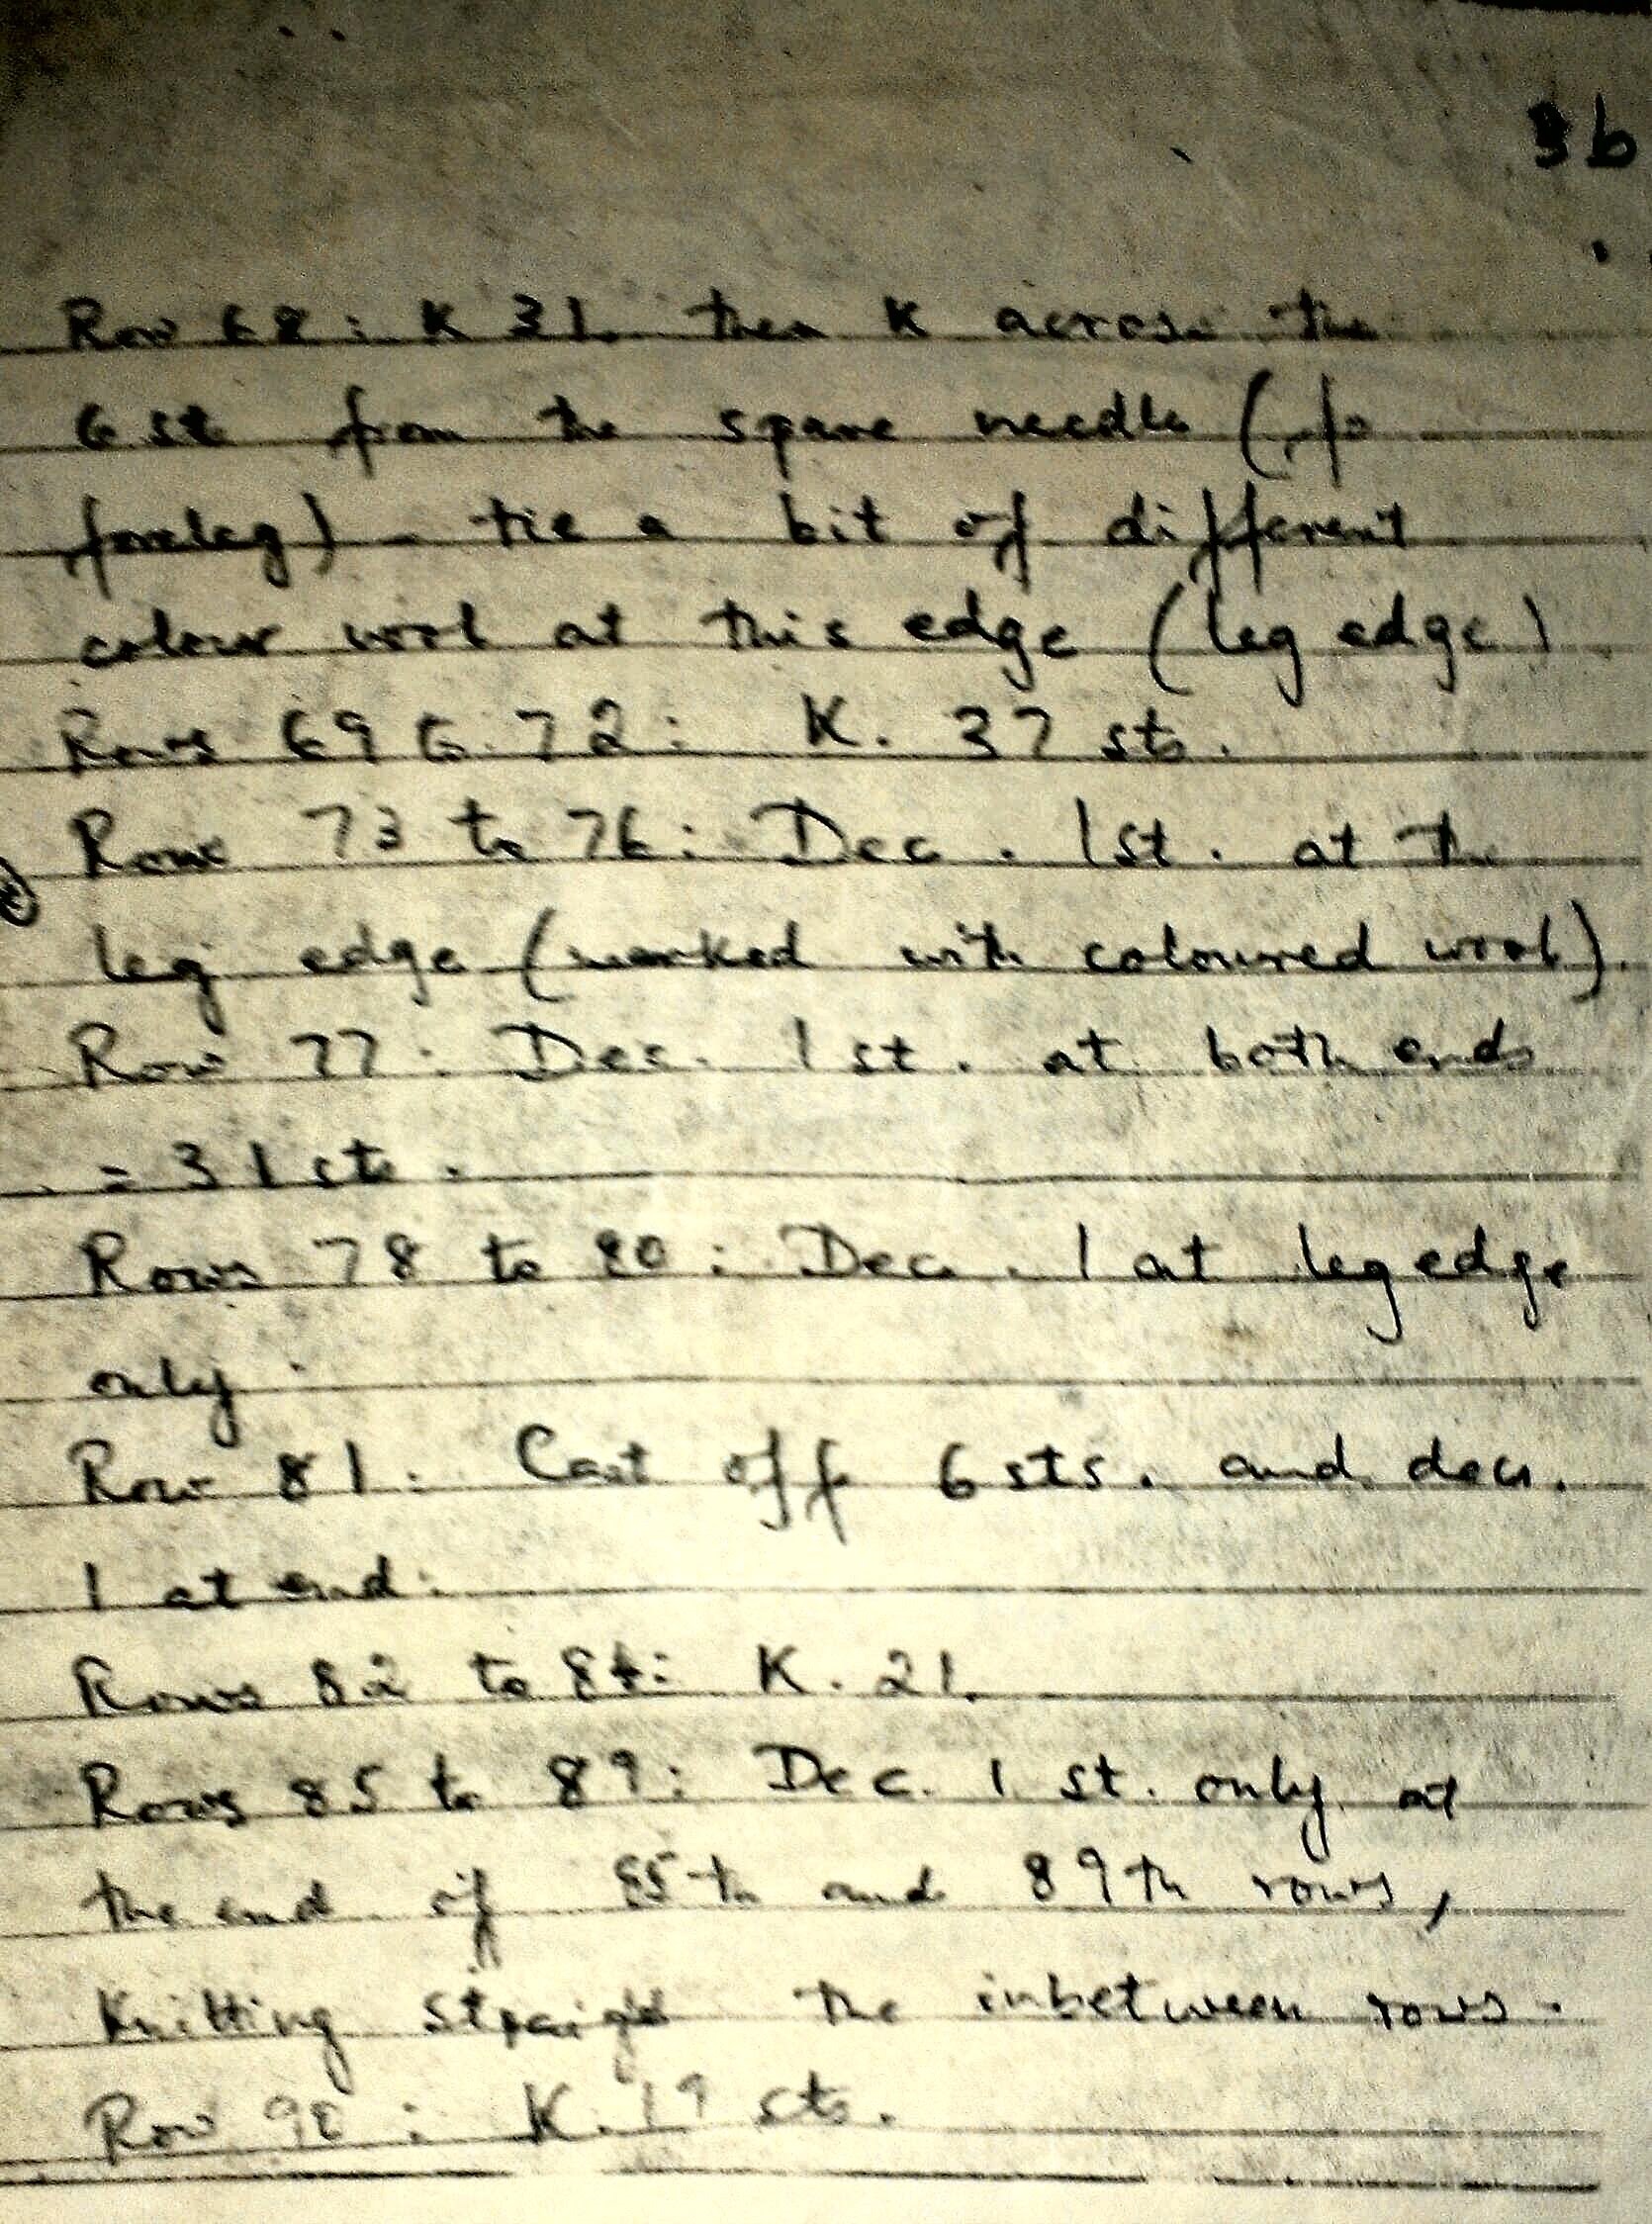 3b
Row 68: K 31. then K across the
6 st from the spare needle (fo
foreleg) - tie a bit of different
colour wool at this edge (leg edge)
Rows 69 to 72: K. 37 sts.
Rows 73 to 76: Dec. 1st. at the
leg edge (marked with coloured wool).
Row 77: Dec. 1 st. at both ends
= 31 sts.
Rows 78 to 80: Dec. 1 at leg edge
only.
Row 81: Cast off 6 sts. and dec.
1 at end.
Rows 82 to 84: K. 21.
Rows 85 to 89: Dec. 1 st. only at
the end of 85th and 89th rows,
Knitting straight the inbetween rows.
Row 90: K. 19 sts.